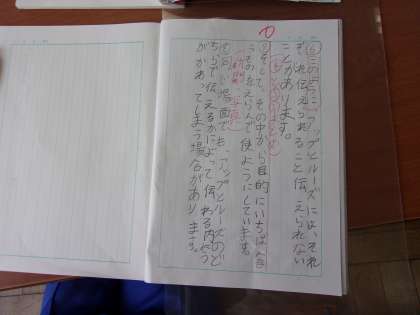 ⑥このように、アップとルーズには、それ
ぞれ伝えられることと伝えられない
ことがあります。
そして、その中から目的にいちばん合
うものをえらんで使うようにしています。
同じ場面でも、アップとルーズのど
ちらで伝えるかによって伝わる内よう
がかわってしまう場合があります。